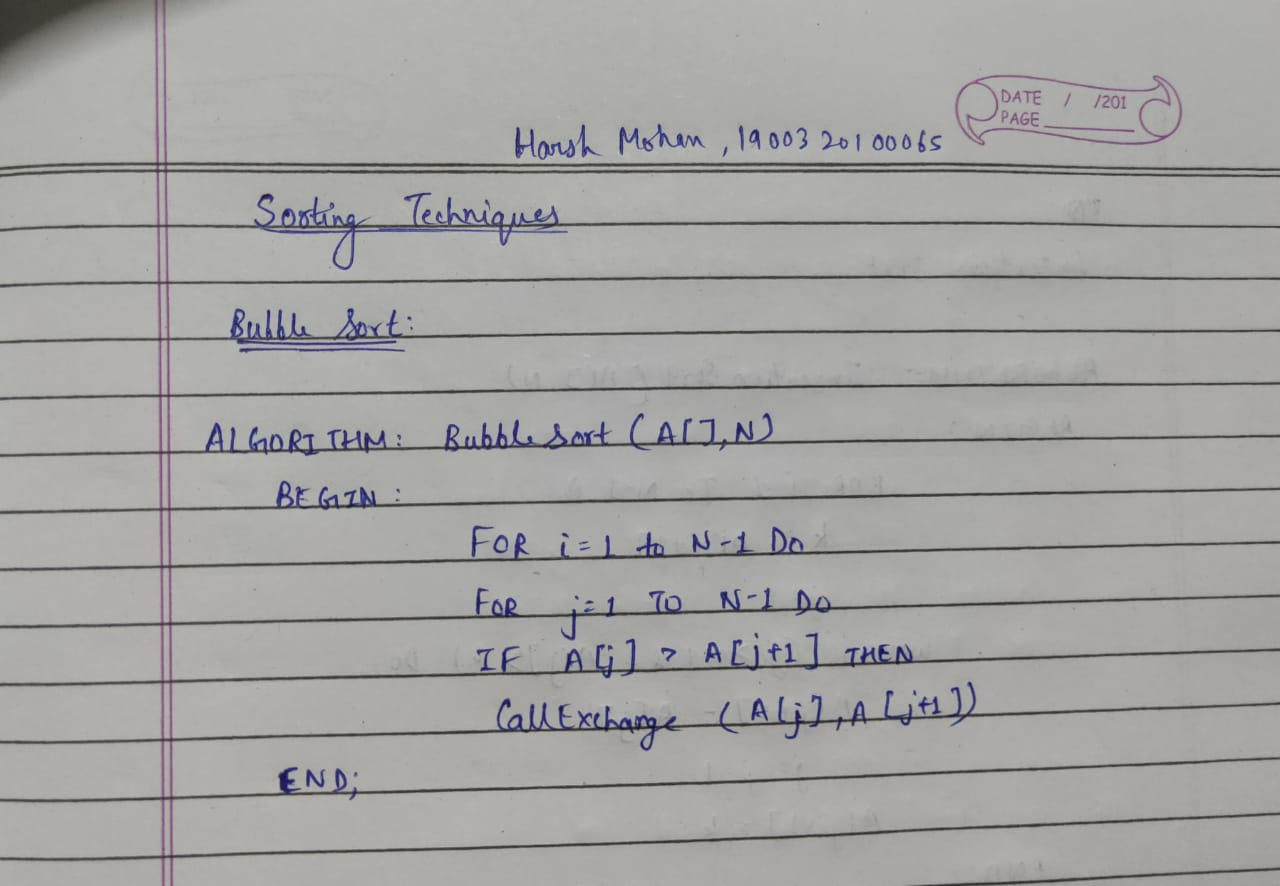 DATE / /201
PAGE
Harsh Mohan, 1900320100065
Sorting Techniques
Bubble Sort:
ALGORITHM: Bubble Sort (A[], N)
BEGIN:
FOR i=1 to N-1 Do
FOR j=1 TO N-1 DO
IF A[j] > A[j+1] THEN
Call Exchange (A[j], A[j+1])
END;